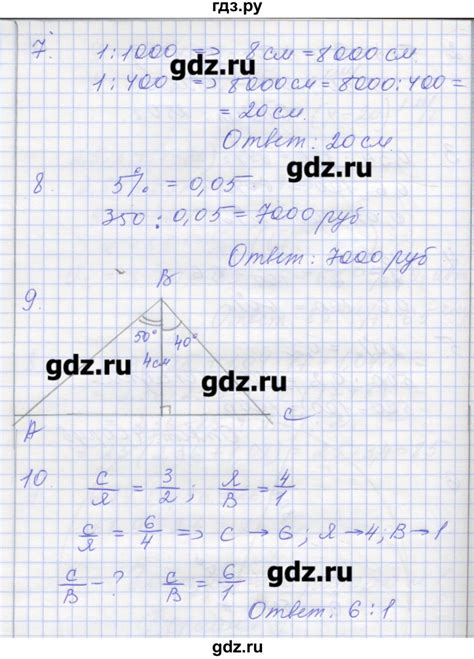 гдз.ру
7. 1:1000 => 8 см = 8000 см.
gdz.ru
1:400 => 8000 см = 8000:400 =
= 20 см.
Ответ: 20 см.
gdz.ru
8. 5% = 0,05
350 : 0,05 = 7000 руб
Ответ: 7000 руб
gdz.ru
9.
B
50° 40°
4 см
gdz.ru
gdz.ru
A C
10. C/Я = 3/2 ; Я/B = 4/1
gdz.ru
C/Я = 6/4 => C → 6 ; Я → 4; B → 1
C/B - ? C/B = 6/1
gdz.ru
Ответ: 6 : 1
gdz.ru
gdz.ru